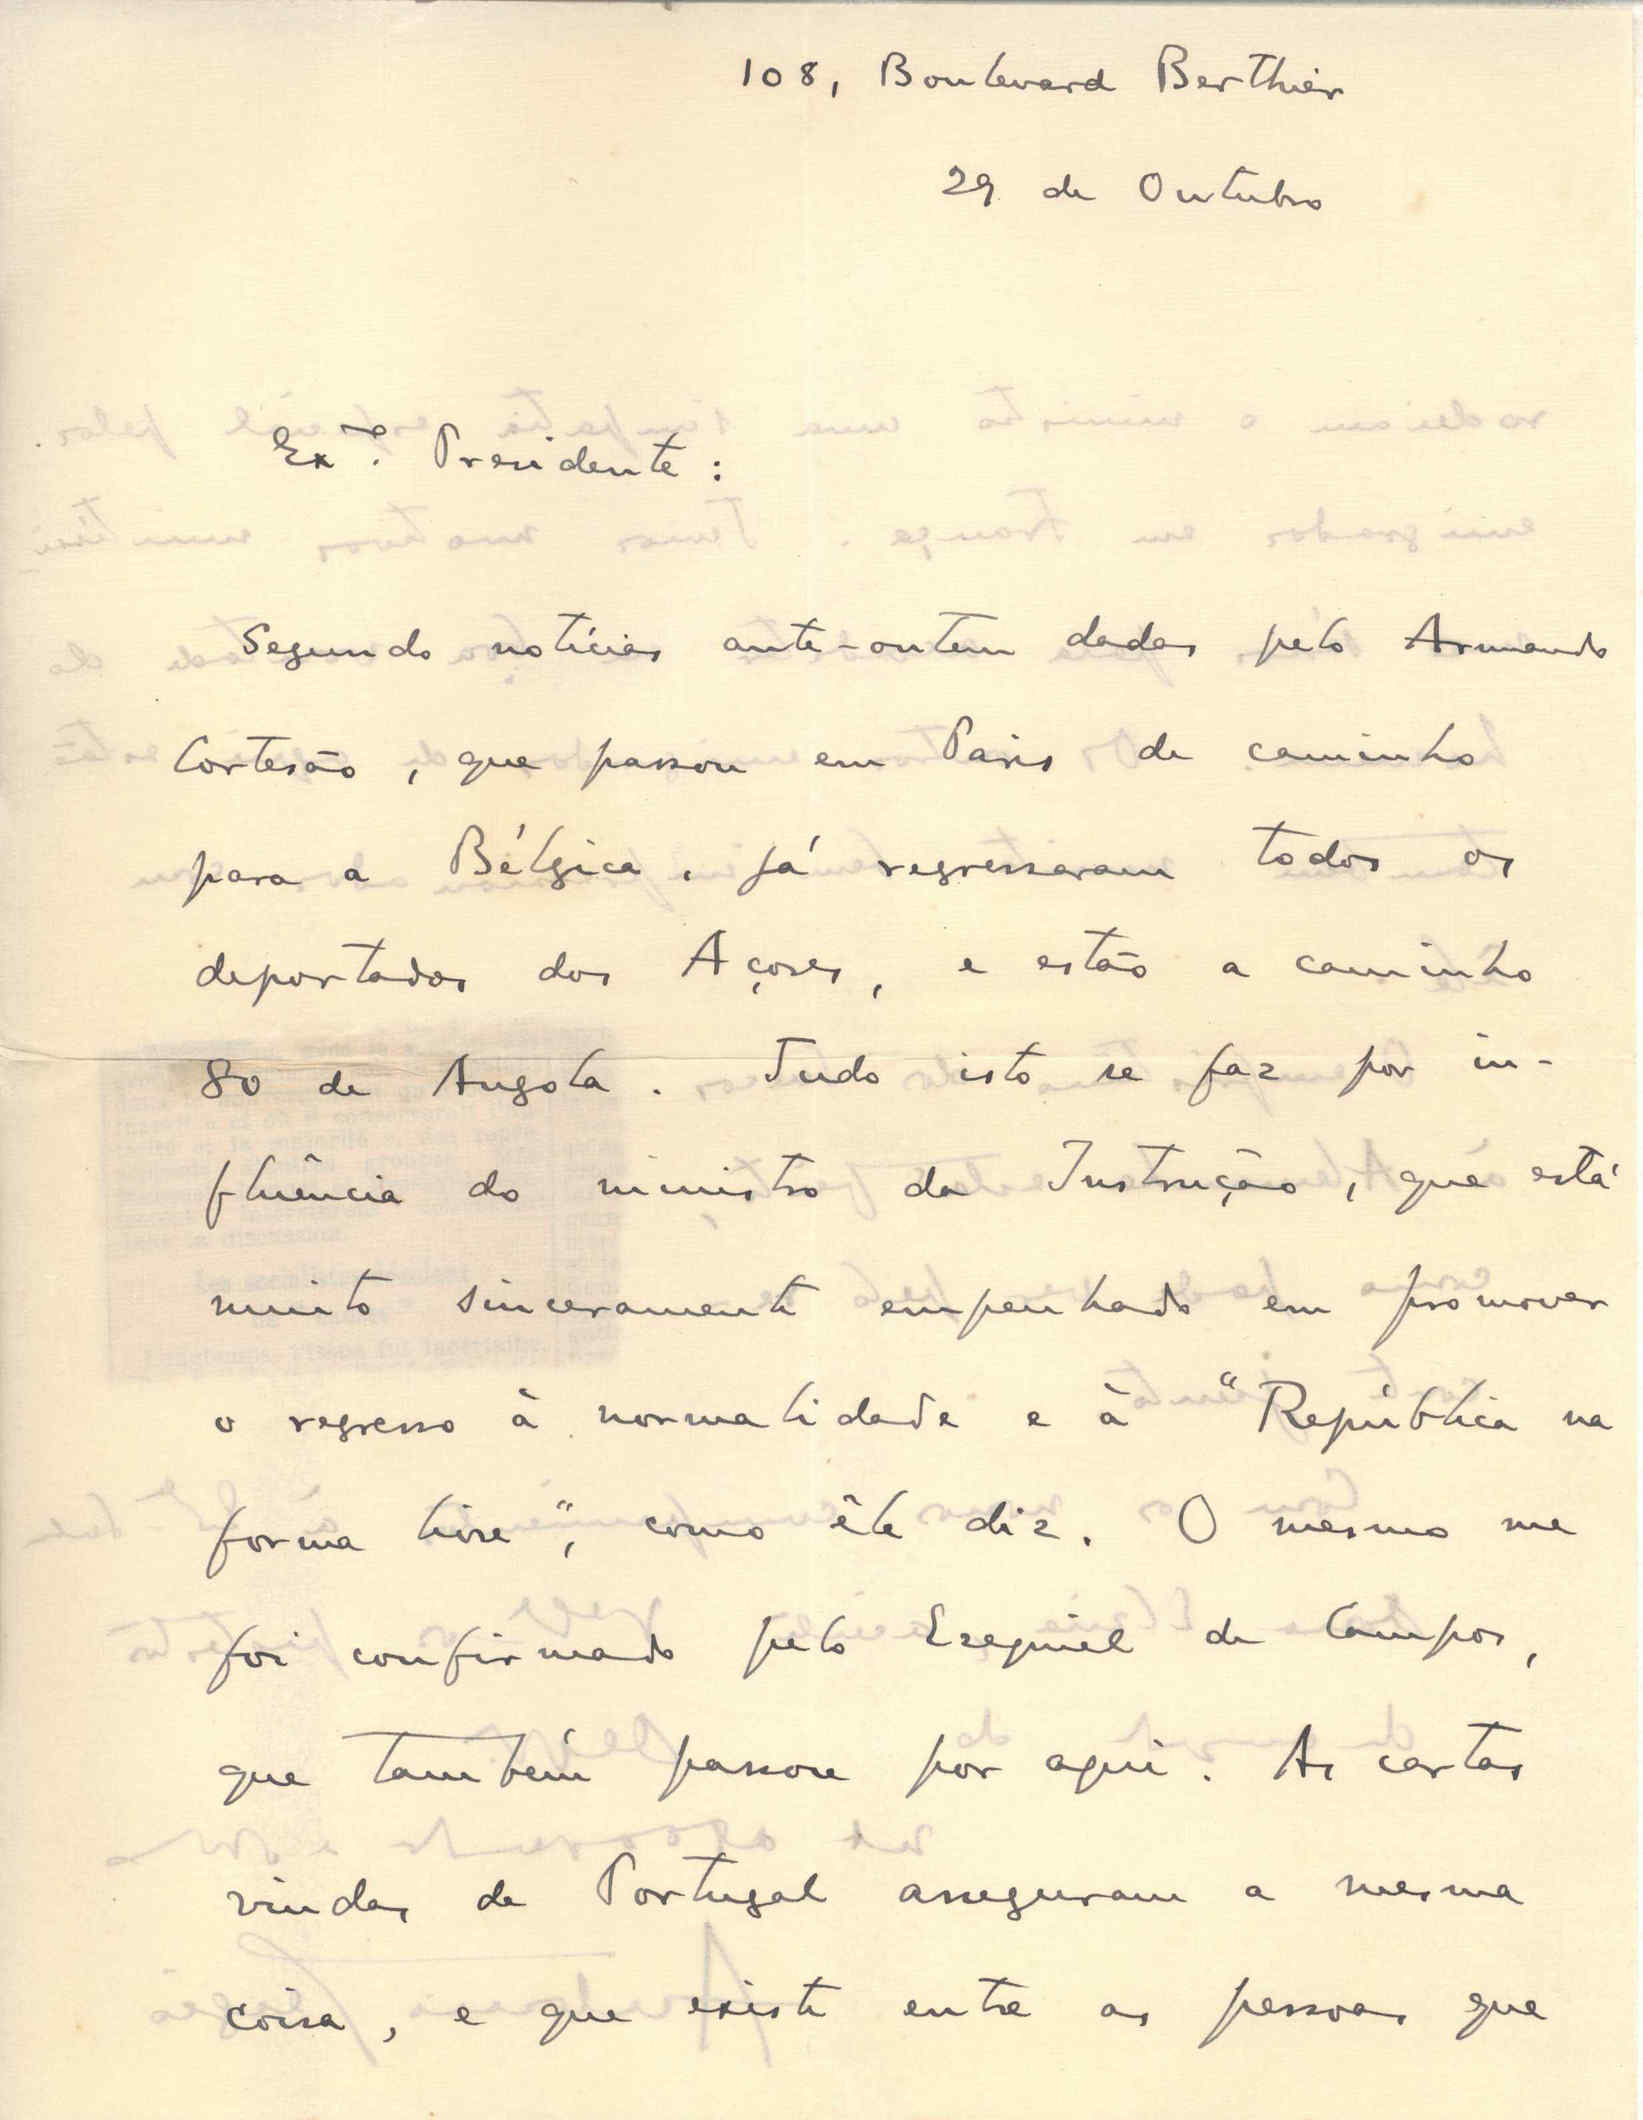 108, Boulevard Berthier
29 de Outubro
Exmo. Presidente:
Segundo notícias ante-ontem dadas pelo Armando
Cortesão, que passou em Paris de caminho
para a Bélgica, já regressaram todos os
deportados dos Açores, e estão a caminho
80 de Angola. Tudo isto se faz por in-
fluência do ministro da Instrução, que está
muito sinceramente empenhado em promover
o regresso à normalidade e à "República na
forma livre", como êle diz. O mesmo me
foi confirmado pelo Ezequiel de Campos,
que também passou por aqui. As cartas
vindas de Portugal asseguram a mesma
coisa, e que existe entre as pessoas que